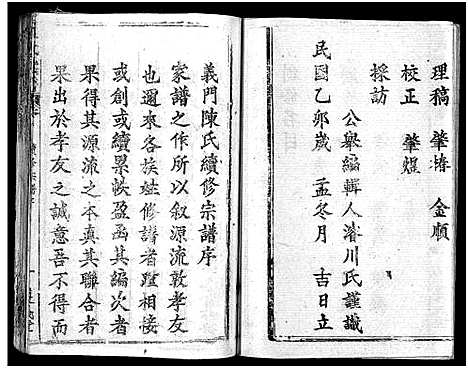 理稿 肇椿 金順
校正 肇煃
採訪
公舉編輯人濬川氏謹識
民國乙卯歲 孟冬月 吉日立
義門陳氏續修宗譜序
家譜之作所以叙源流敦孝友
也邇來各族姓修譜者踵相接
或創或續累帙盈函其編次者
果得其源流之本真其聯合者
果出於孝友之誠意吾不得而